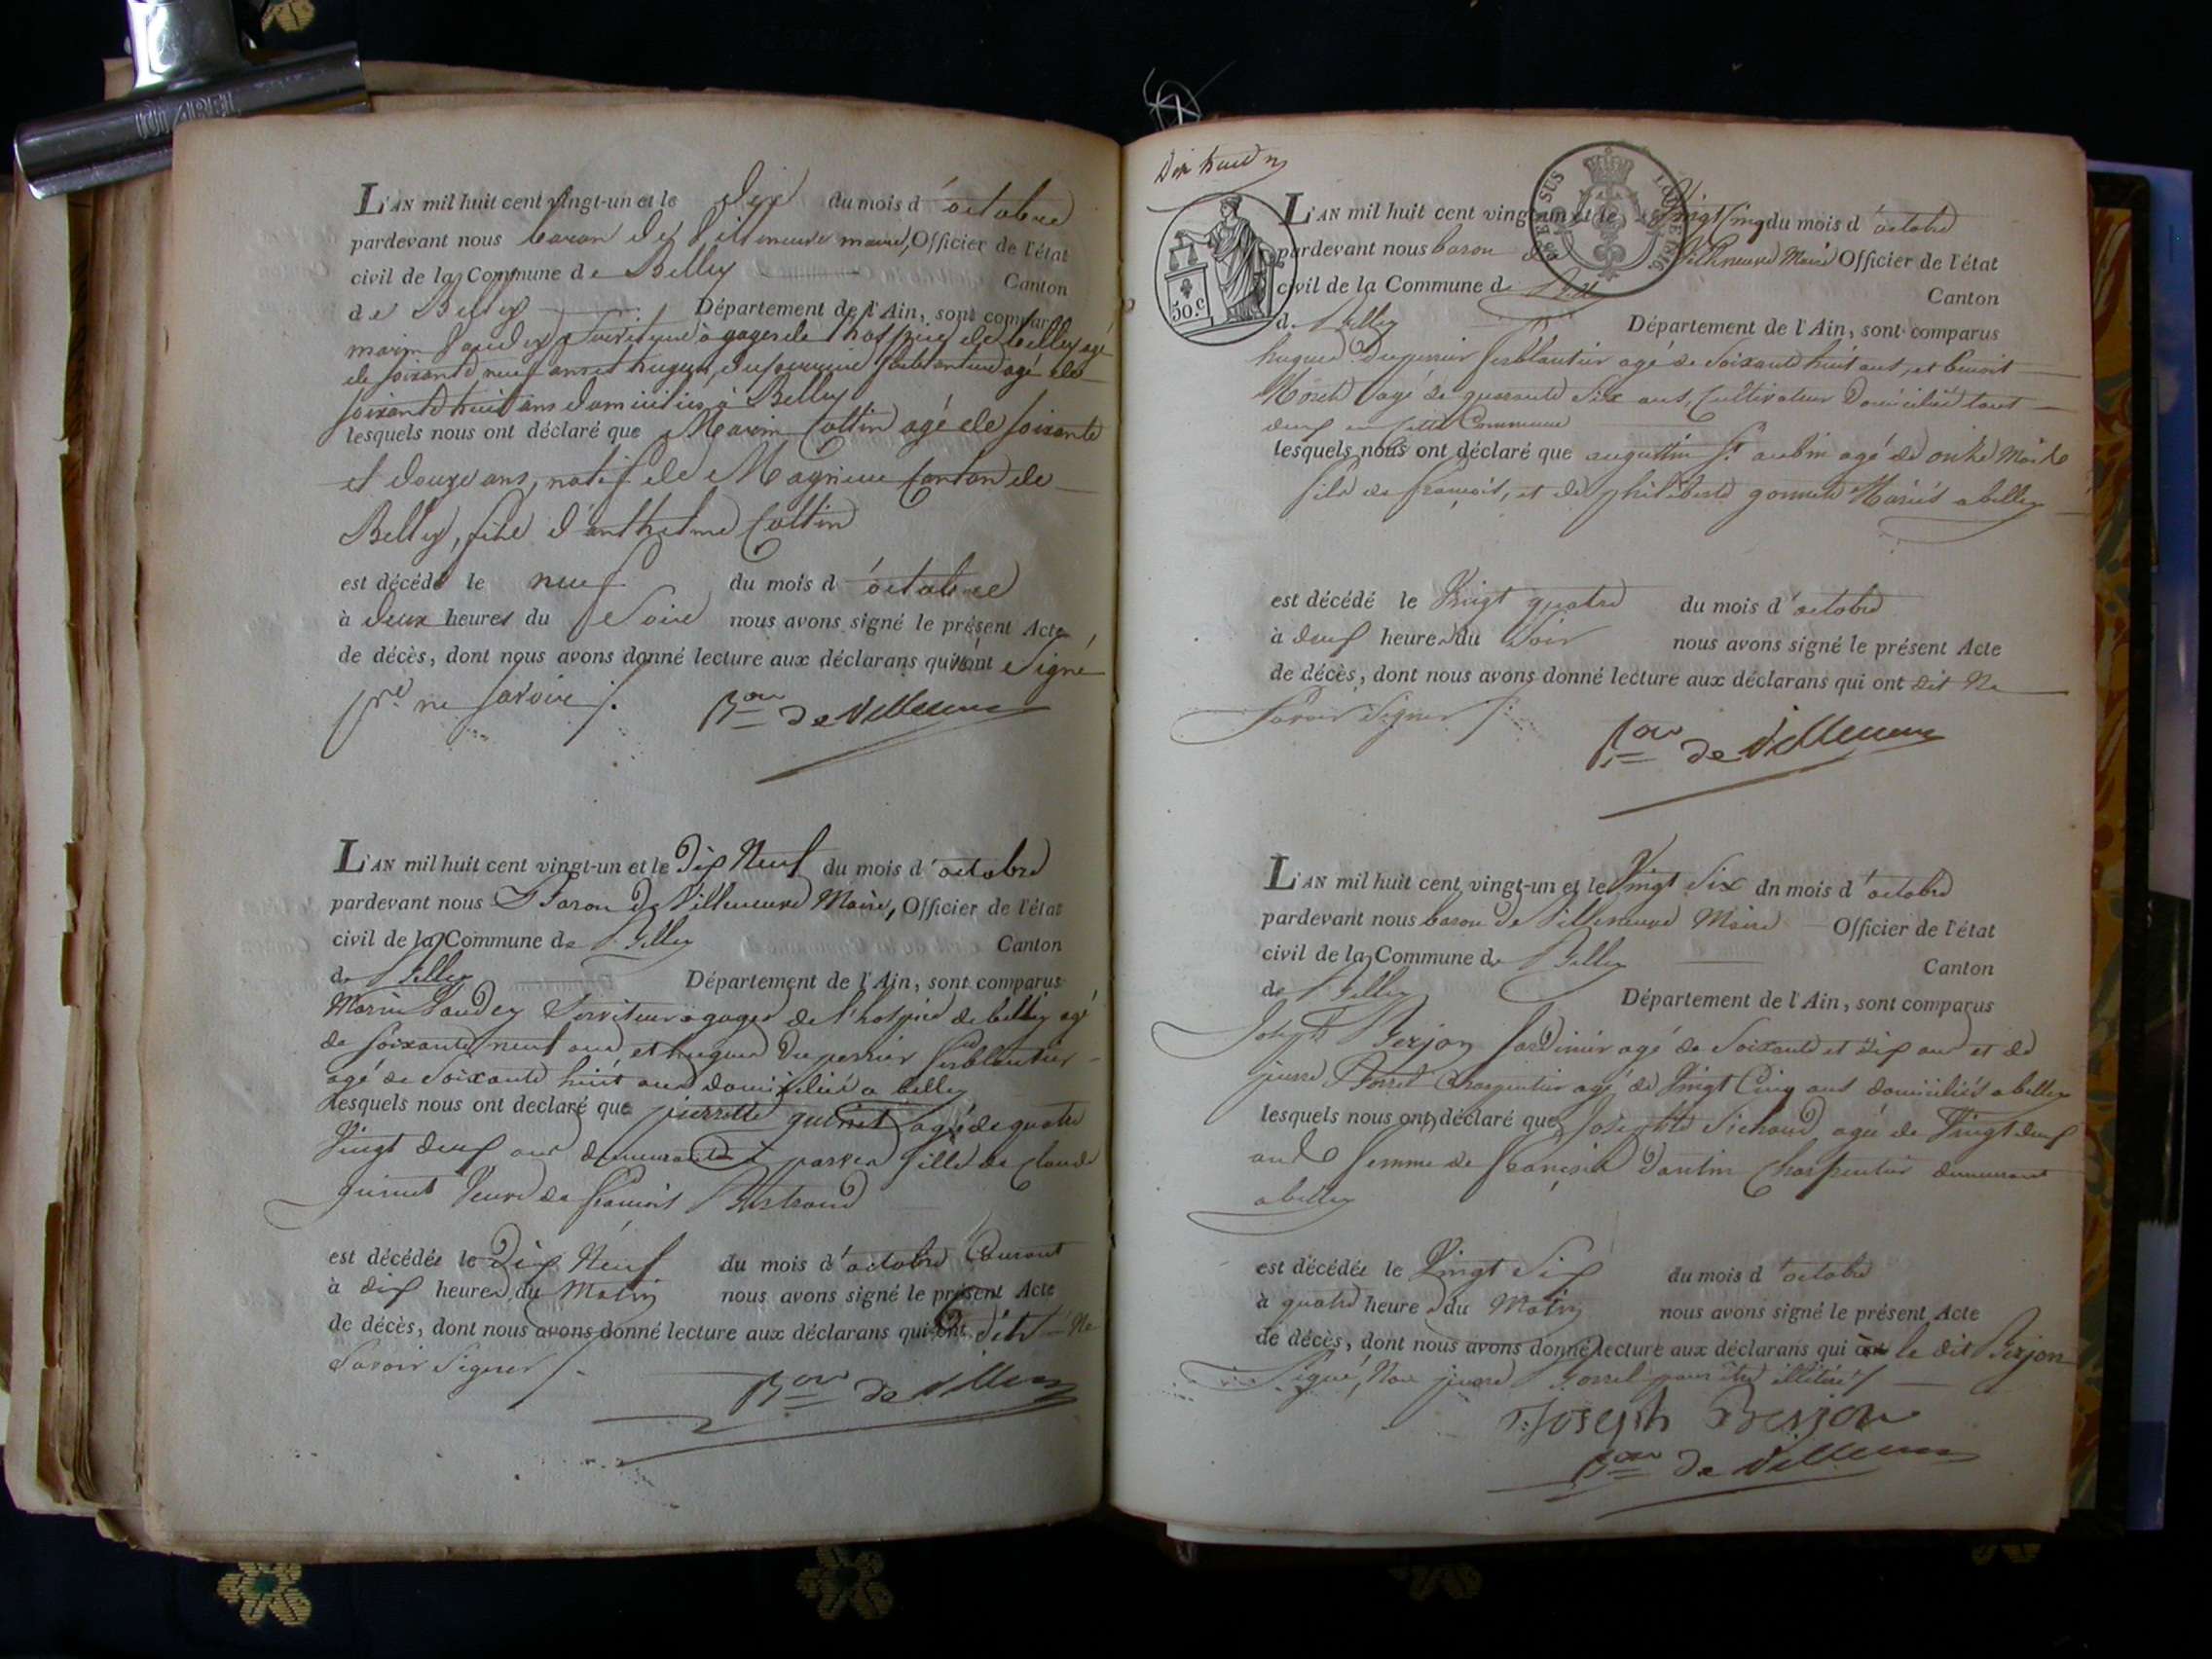 L'AN mil huit cent vingt-un et le dix du mois d'octobre
pardevant nous baron de Villeneuve maire, Officier de l'état
civil de la Commune de Belley Canton
de Belley Département de l'Ain, sont comparus
marin serviteur à gages de l'hospice de belley agé
de soixante neuf ans et hugues duperrier ferblantier agé de
soixante huit ans domiciliés à Belley
lesquels nous ont déclaré que Marin Cottin agé de soixante
et douze ans, natif de Magnieu Canton de
Belley, fils d'anthelme Cottin
est décédé le neuf du mois d'octobre
à deux heures du Soir nous avons signé le présent Acte
de décès, dont nous avons donné lecture aux déclarans qui n'ont Signé
pr. ne savoir /.
Bon de Villeneuve
L'AN mil huit cent vingt-un et le Dix Neuf du mois d'octobre
pardevant nous Baron de Villeneuve Maire, Officier de l'état
civil de la Commune de Belley Canton
de Belley Département de l'Ain, sont comparus
Marin Serviteur a gages de l'hospice de belley agé
de soixante neuf ans et hugues Duperrier ferblantier
agé de Soixante huit ans domiciliés a belley
lesquels nous ont declaré que pierrette quinet agée de quatre
Vingt deux ans demeurante a fille de Claude
quinet Veuve de francois Bertrand
est décédée le Dix Neuf du mois d'octobre Courant
à dix heures du Matin nous avons signé le présent Acte
de décès, dont nous avons donné lecture aux déclarans qui ont dit Ne
Savoir Signer /.
Bon de Villeneuve
50.c
L'AN mil huit cent vingt-un et le Vingt Cinq du mois d'octobre
pardevant nous baron de Villeneuve Maire Officier de l'état
civil de la Commune de Belley Canton
de Belley Département de l'Ain, sont comparus
hugues Duperrier ferblantier agé de Soixante huit ans, et benoit
agé de quarante Six ans, Cultivateur Domiciliés tous
deux en cette Commune
lesquels nous ont déclaré que augustin St aubin agé de onze Mois
fils de francois, et de philiberte gonnet Mariés a belley
est décédé le Vingt quatre du mois d'octobre
à deux heures du Soir nous avons signé le présent Acte
de décès, dont nous avons donné lecture aux déclarans qui ont dit Ne
Savoir Signer /.
Bon de Villeneuve
L'AN mil huit cent vingt-un et le Vingt Six du mois d'octobre
pardevant nous baron de Villeneuve Maire Officier de l'état
civil de la Commune de Belley Canton
de Belley Département de l'Ain, sont comparus
Joseph Berjon Jardinier agé de Soixante et dix ans et de
pierre Borrel Charpentier agé de Vingt Cinq ans domiciliés a belley
lesquels nous ont déclaré que Josephte agée de Vingt deux
ans femme de francois Dantin Charpentier demeurant
a belley
est décédée le Vingt Six du mois d'octobre
à quatre heures du Matin nous avons signé le présent Acte
de décès, dont nous avons donné lecture aux déclarans qui ont le dit Berjon
Signé, Non pierre Borrel pour être illitéré /.
Joseph Berjon
Bon de Villeneuve